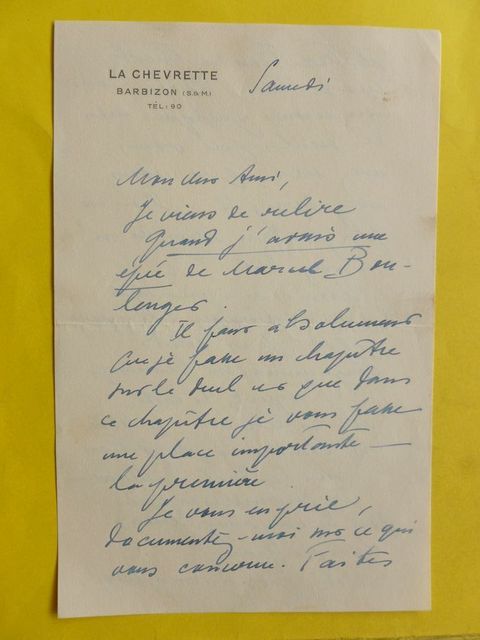 LA CHEVRETTE
BARBIZON (S.&M.)
TÉL: 90
Samedi
Mon cher Ami,
Je viens de relire
Quand j'avais une
épée de Marcel Bou-
lenger.
Il faut absolument
que je fasse un chapître
sur le duel et que dans
ce chapître je vous fasse
une place importante —
la première
Je vous en prie,
documentez-moi sur ce qui
vous concerne. Faites